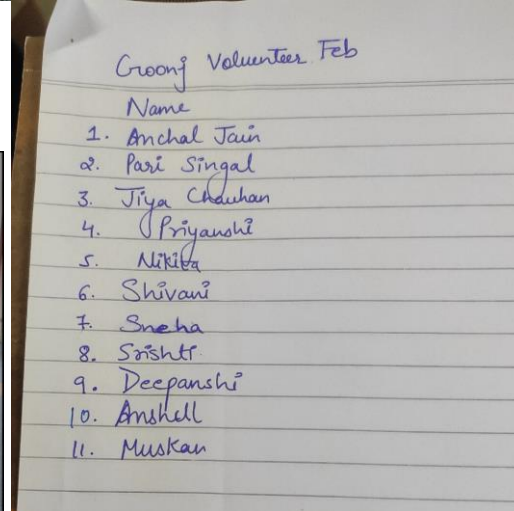 Goonj Voluenteer Feb
Name
1. Anchal Jain
2. Pari Singal
3. Jiya Chauhan
4. Priyanshi
5. Nikita
6. Shivani
7. Sneha
8. Srishti
9. Deepanshi
10. Anshell
11. Muskan